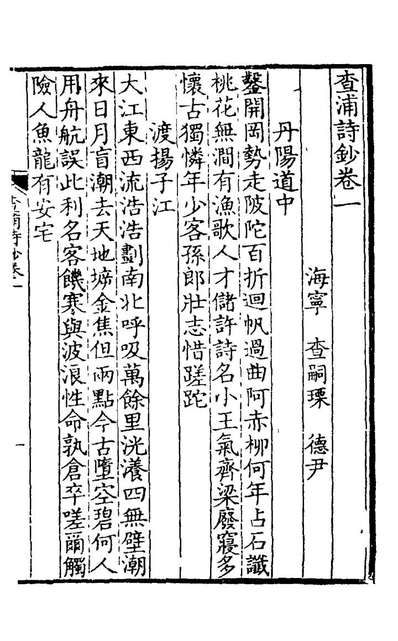 查浦詩鈔卷一
海寧 查嗣瑮 德尹
丹陽道中
鑿開岡勢走陂陀百折迴帆過曲阿赤柳何年占石讖
桃花無澗有漁歌人才儲許詩名小王氣齊梁廢寢多
懷古獨憐年少客孫郎壯志惜蹉跎
渡揚子江
大江東西流浩浩劃南北呼吸萬餘里洸瀁四無壁潮
來日月盲潮去天地坼金焦但兩點今古墮空碧何人
用舟航誤此利名客饑寒與波浪性命孰倉卒嗟爾觸
險人魚龍有安宅
查浦詩鈔卷一
一